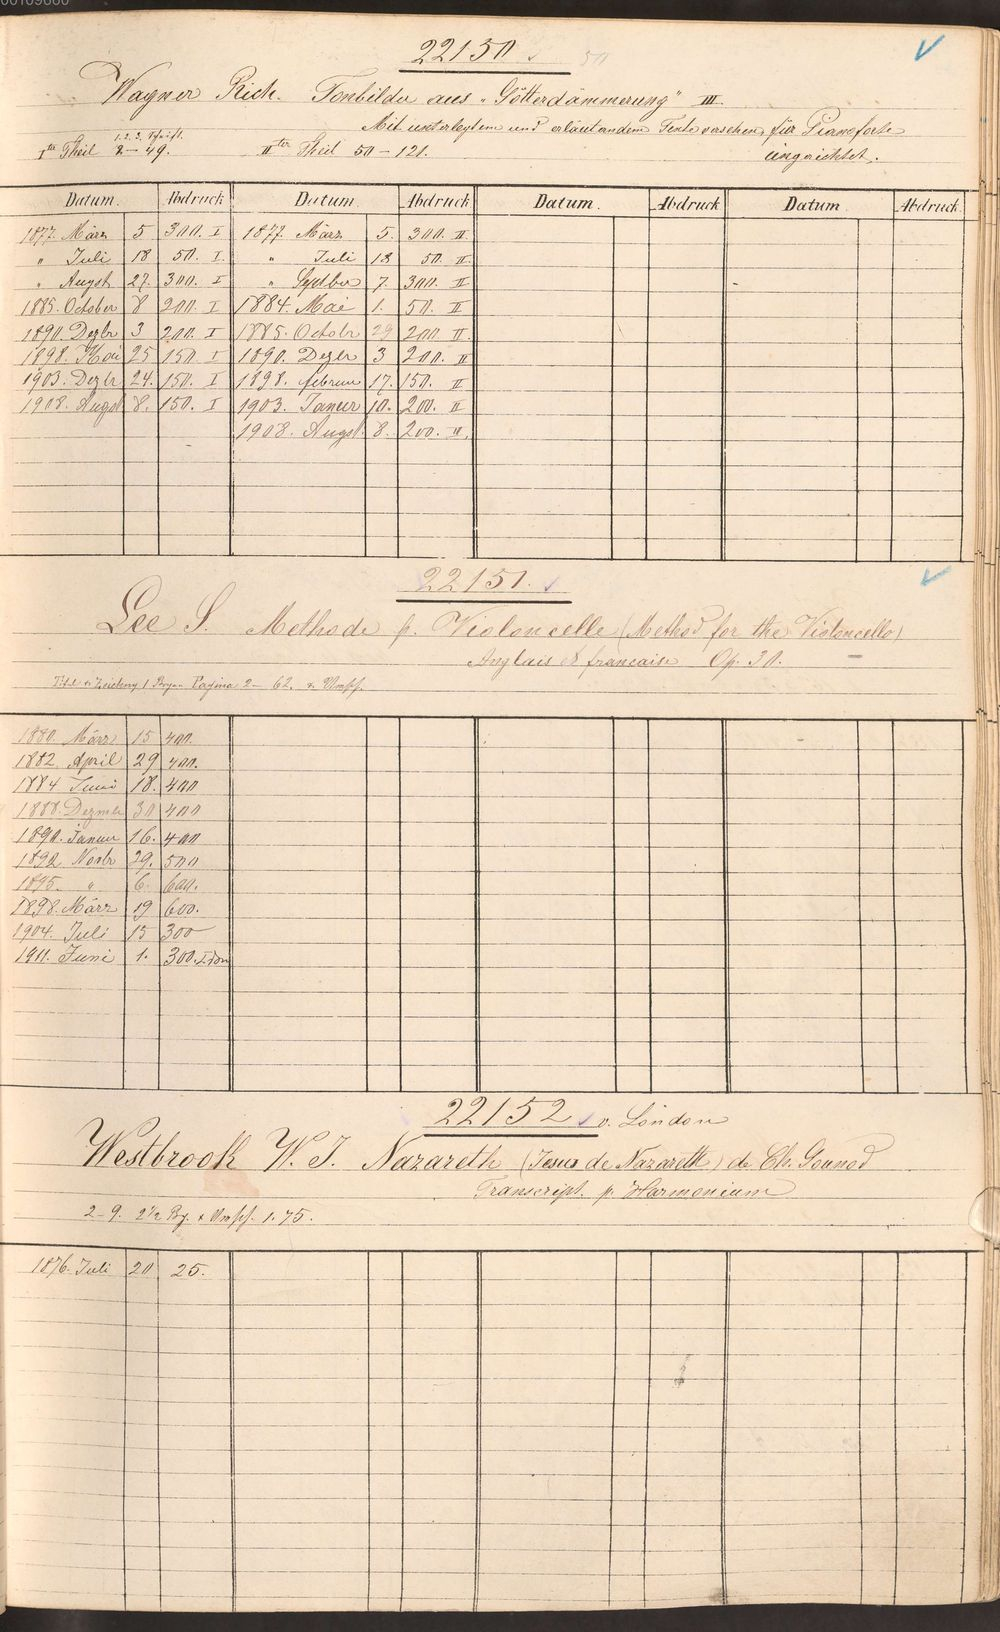 22150 50
Wagner Rich. Tonbilder aus „Götterdämmerung" III.
Mit unterlegtem und erläuterndem Texte versehen, für Pianoforte
eingerichtet.
1. 2. 3. Schrift.
Iter Theil 2–49. IIter Theil 50–121.
Datum. Abdruck Datum. Abdruck Datum. Abdruck Datum. Abdruck
1877. März 5 300. I 1877. März 5. 300. II
„ Juli 18 50. I „ Juli 18 50. II
„ Augst 27. 300. I „ Septber 7. 300. II
1885. October 8 200. I 1884. Mai 1. 50. II
1890. Dezbr 3 200. I 1885. Octobr 29 200 II
1898. Mai 25 150. I 1890. Dezbr 3 200. II
1903. Dezbr 24. 150. I 1898. februar 17. 150. II
1908. Augst 8. 150. I 1903. Januar 10. 200. II
1908. Augst. 8. 200. II.
22151.
Lee S. Methode p. Violoncelle (Method for the Violoncello)
Anglais & francaise Op. 30.
Pagina 2–62.
1880. März 15 400.
1882. April 29 400.
1884 Juni 18. 400
1888. Dezmbr 30 400
1890. Januar 16. 400
1892 Novbr 29. 500
1895. „ 6. 600.
1898. März 19 600.
1904. Juli 15 300
1911. Juni 1. 300.
22152 v. London
Westbrook W. J. Nazareth (Jesus de Nazareth) de Ch. Gounod
Transcript. p. Harmonium
2–9. 2½ Bg. 1.75.
1876. Juli 20 25.